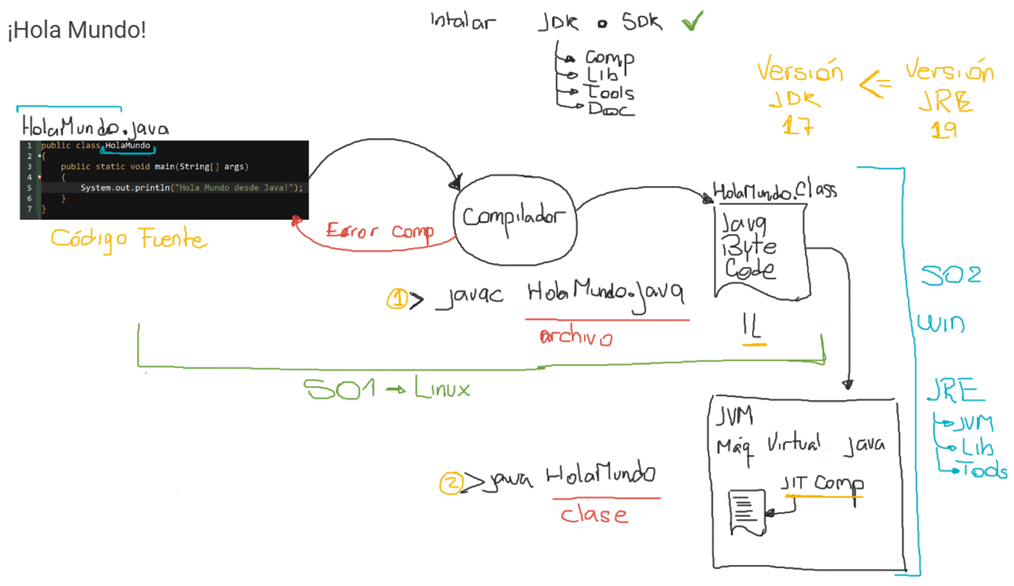 ¡Hola Mundo!
Intalar JDK o SDK
Comp
Lib
Tools
Doc
Versión JDK 17 <= Versión JRE 19
HolaMundo.java
1 public class HolaMundo
2 {
3 public static void main(String[] args)
4 {
5 System.out.println("Hola Mundo desde Java!");
6 }
7 }
Código Fuente
Error comp
Compilador
HolaMundo.Class
Java
Byte
Code
IL
1 > javac HolaMundo.java
archivo
SO1 → Linux
SO2
WIN
JRE
JVM
Lib
Tools
JVM
Máq Virtual Java
JIT Comp
2 > java HolaMundo
clase